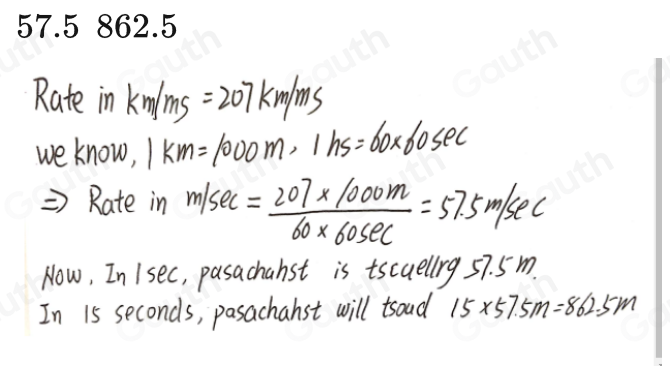 57.5 862.5
Rate in km/ms = 207 km/ms
we know, 1 km = 1000 m, 1 hs = 60 × 60 sec
⇒ Rate in m/sec = 207 × 1000 m / 60 × 60 sec = 57.5 m/sec
Now, In 1 sec, pasachahst is tscuellrg 57.5 m.
In 15 seconds, pasachahst will tsoud 15 × 57.5m = 862.5m